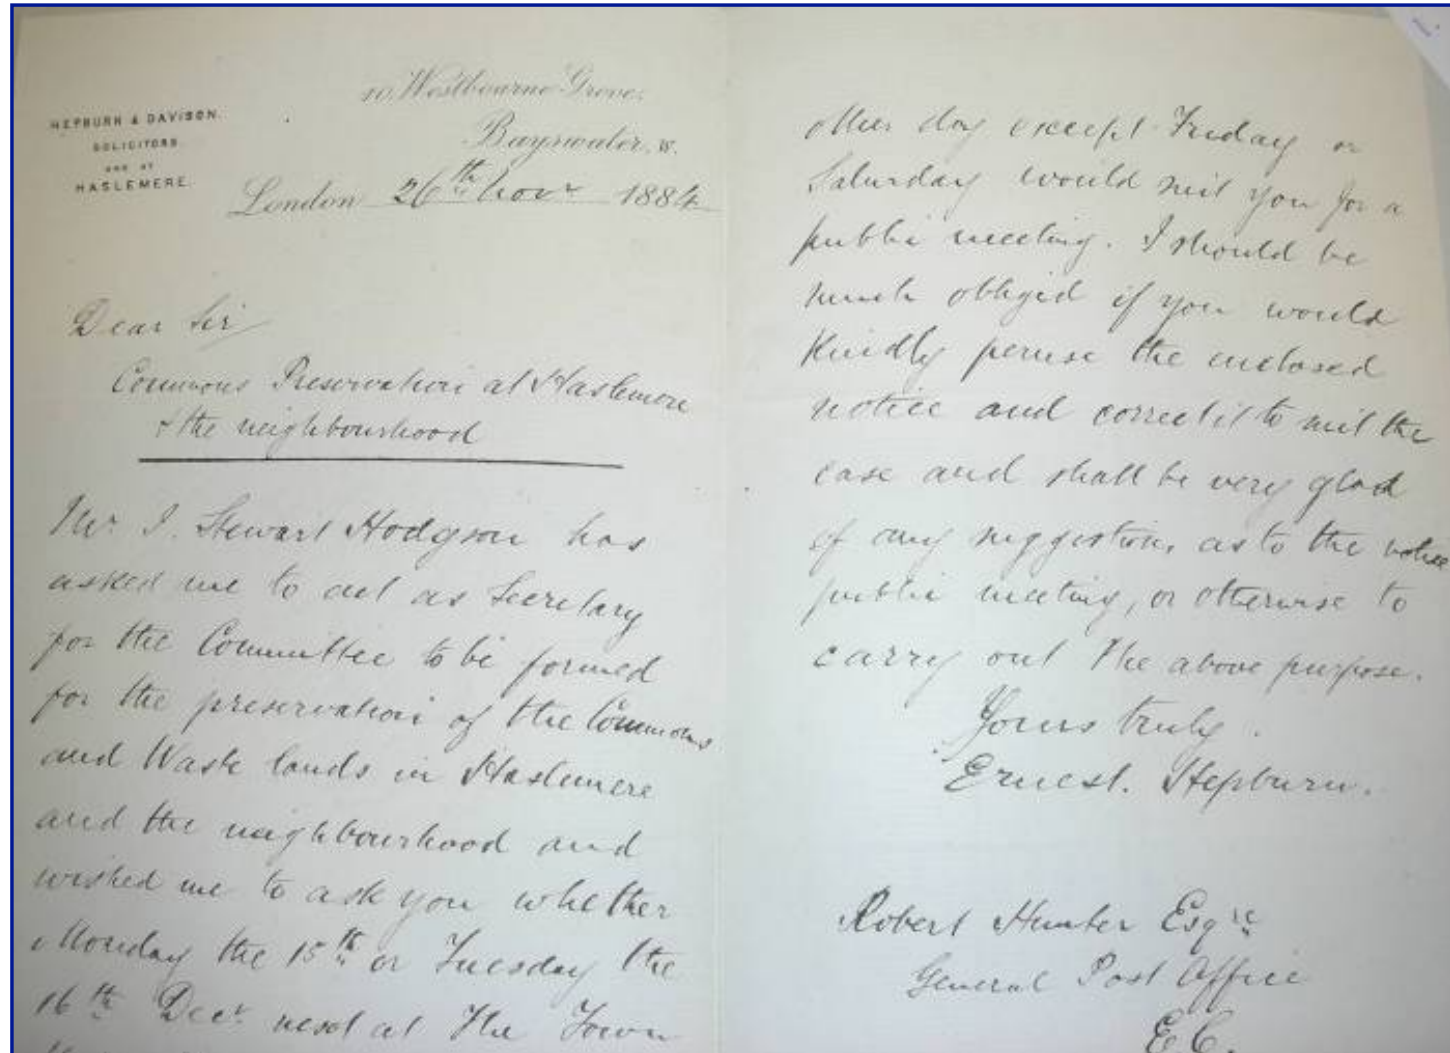 HEPBURN & DAVISON.
SOLICITORS
AND AT
HASLEMERE.
10, Westbourne Grove,
Bayswater, W.
London 26th Novr 1884
Dear Sir
Commons Preservation at Haslemere
& the neighbourhood
Mr J. Stewart Hodgson has
asked me to act as Secretary
for the Committee to be formed
for the preservation of the Commons
and Waste lands in Haslemere
and the neighbourhood and
wished me to ask you whether
Monday the 15th or Tuesday the
16th Decr next at the Town
other day except Friday or
Saturday would suit you for a
public meeting. I should be
much obliged if you would
Kindly peruse the enclosed
notice and correct it to suit the
case and shall be very glad
of any suggestions as to the notice
public meeting, or otherwise to
carry out the above purpose.
Yours truly.
Ernest. Hepburn.
Robert Hunter Esqre
General Post Office
E.C.